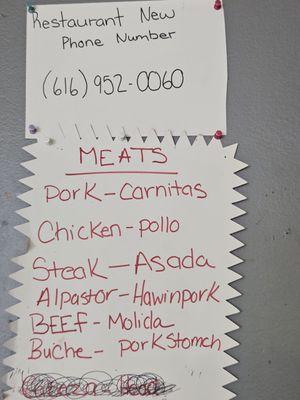 Restaurant New
Phone Number
(616) 952-0060
MEATS
Pork-Carnitas
Chicken-pollo
Steak-Asada
Alpastor-Hawinpork
BEEF-Molida
Buche- pork Stomch